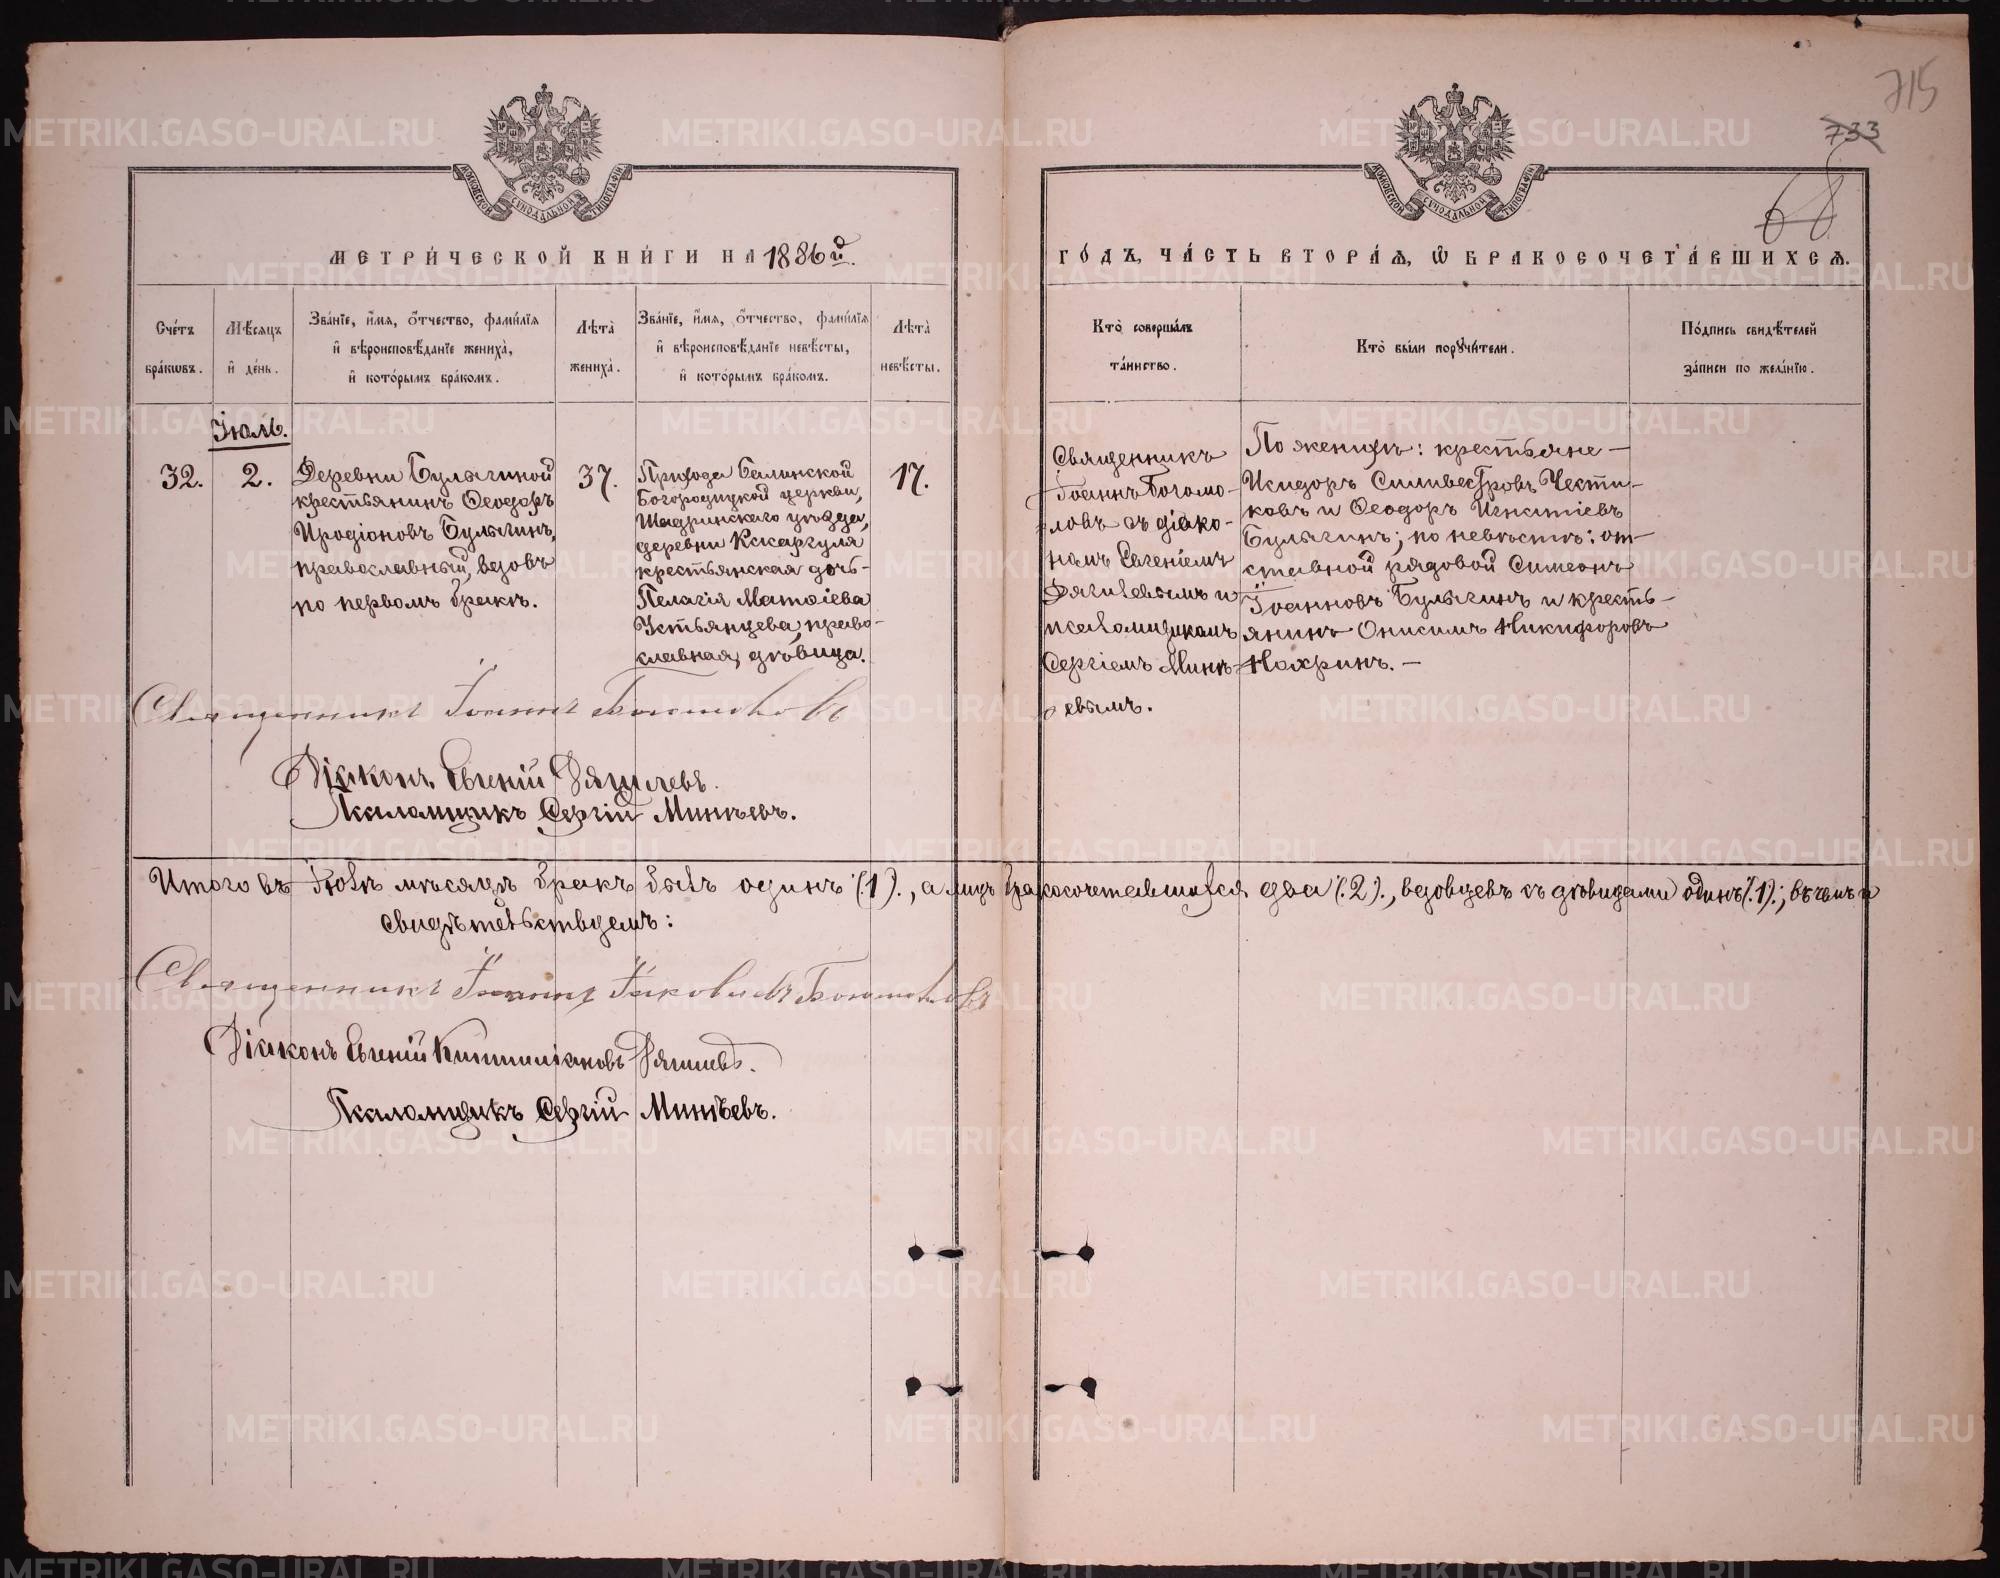 715
733
68
МЕТРИ́ЧЕСКОЙ КНИ́ГИ НА 1886й.
ГО́ДЪ, ЧА́СТЬ ВТОРА́Я, Ѿ БРАКОСОЧЕТА́ВШИХСЯ.
Сче́тъ бра́кѡвъ.
Мѣ́сяцъ и де́нь.
Зва́нїе, и́мя, о́тчество, фами́лїя и вѣроисповѣ́данїе жениха̀, и кото́рымъ бра́комъ.
Лѣта̀ жениха̀.
Зва́нїе, и́мя, о́тчество, фами́лїя и вѣроисповѣ́данїе невѣ́сты, и кото́рымъ бра́комъ.
Лѣта̀ невѣ́сты.
Кто̀ соверша́лъ та́инство.
Кто̀ бы́ли поручи́тели.
По́дпись свидѣ́телей за́писи по жела́нїю.
Іюль.
32.
2.
Деревни Булыгиной
крестьянинъ Ѳеодоръ
Иродіоновъ Булыгинъ,
православный, вдовъ
по первомъ бракѣ.
37.
Прихода
Богородицкой церкви,
Шадринскаго уѣзда,
деревни Кскаргуля
крестьянская дочь
Пелагія Матѳіева
Устьянцева, право-
славная, дѣвица.
17.
Священникъ
Іоаннъ Богомо-
ловъ съ діако-
номъ Евгеніемъ
Дягилевымъ и
псаломщикомъ
Сергіемъ Минѣ-
евымъ.
По женихѣ: крестьяне –
Исидоръ Силивестровъ Чести-
ковъ и Ѳеодоръ Игнатіевъ
Булыгинъ; по невѣстѣ: от-
ставной рядовой Симеонъ
Іоанновъ Булыгинъ и кресть-
янинъ Онисимъ Никифоровъ
Нохринъ. –
Священникъ Іоаннъ Богомоловъ
Діаконъ Евгеній Дягилевъ.
Псаломщикъ Сергій Минѣевъ.
Итого въ Іюлѣ мѣсяцѣ бракъ былъ одинъ (.1)., а лицъ бракосочетавшихся два (.2)., вдовцевъ съ дѣвицами одинъ (.1).; въ чемъ и
свидѣтельствуемъ:
Священникъ Іоаннъ Іаковлевъ Богомоловъ
Діаконъ Евгеній Дягилевъ.
Псаломщикъ Сергій Минѣевъ.